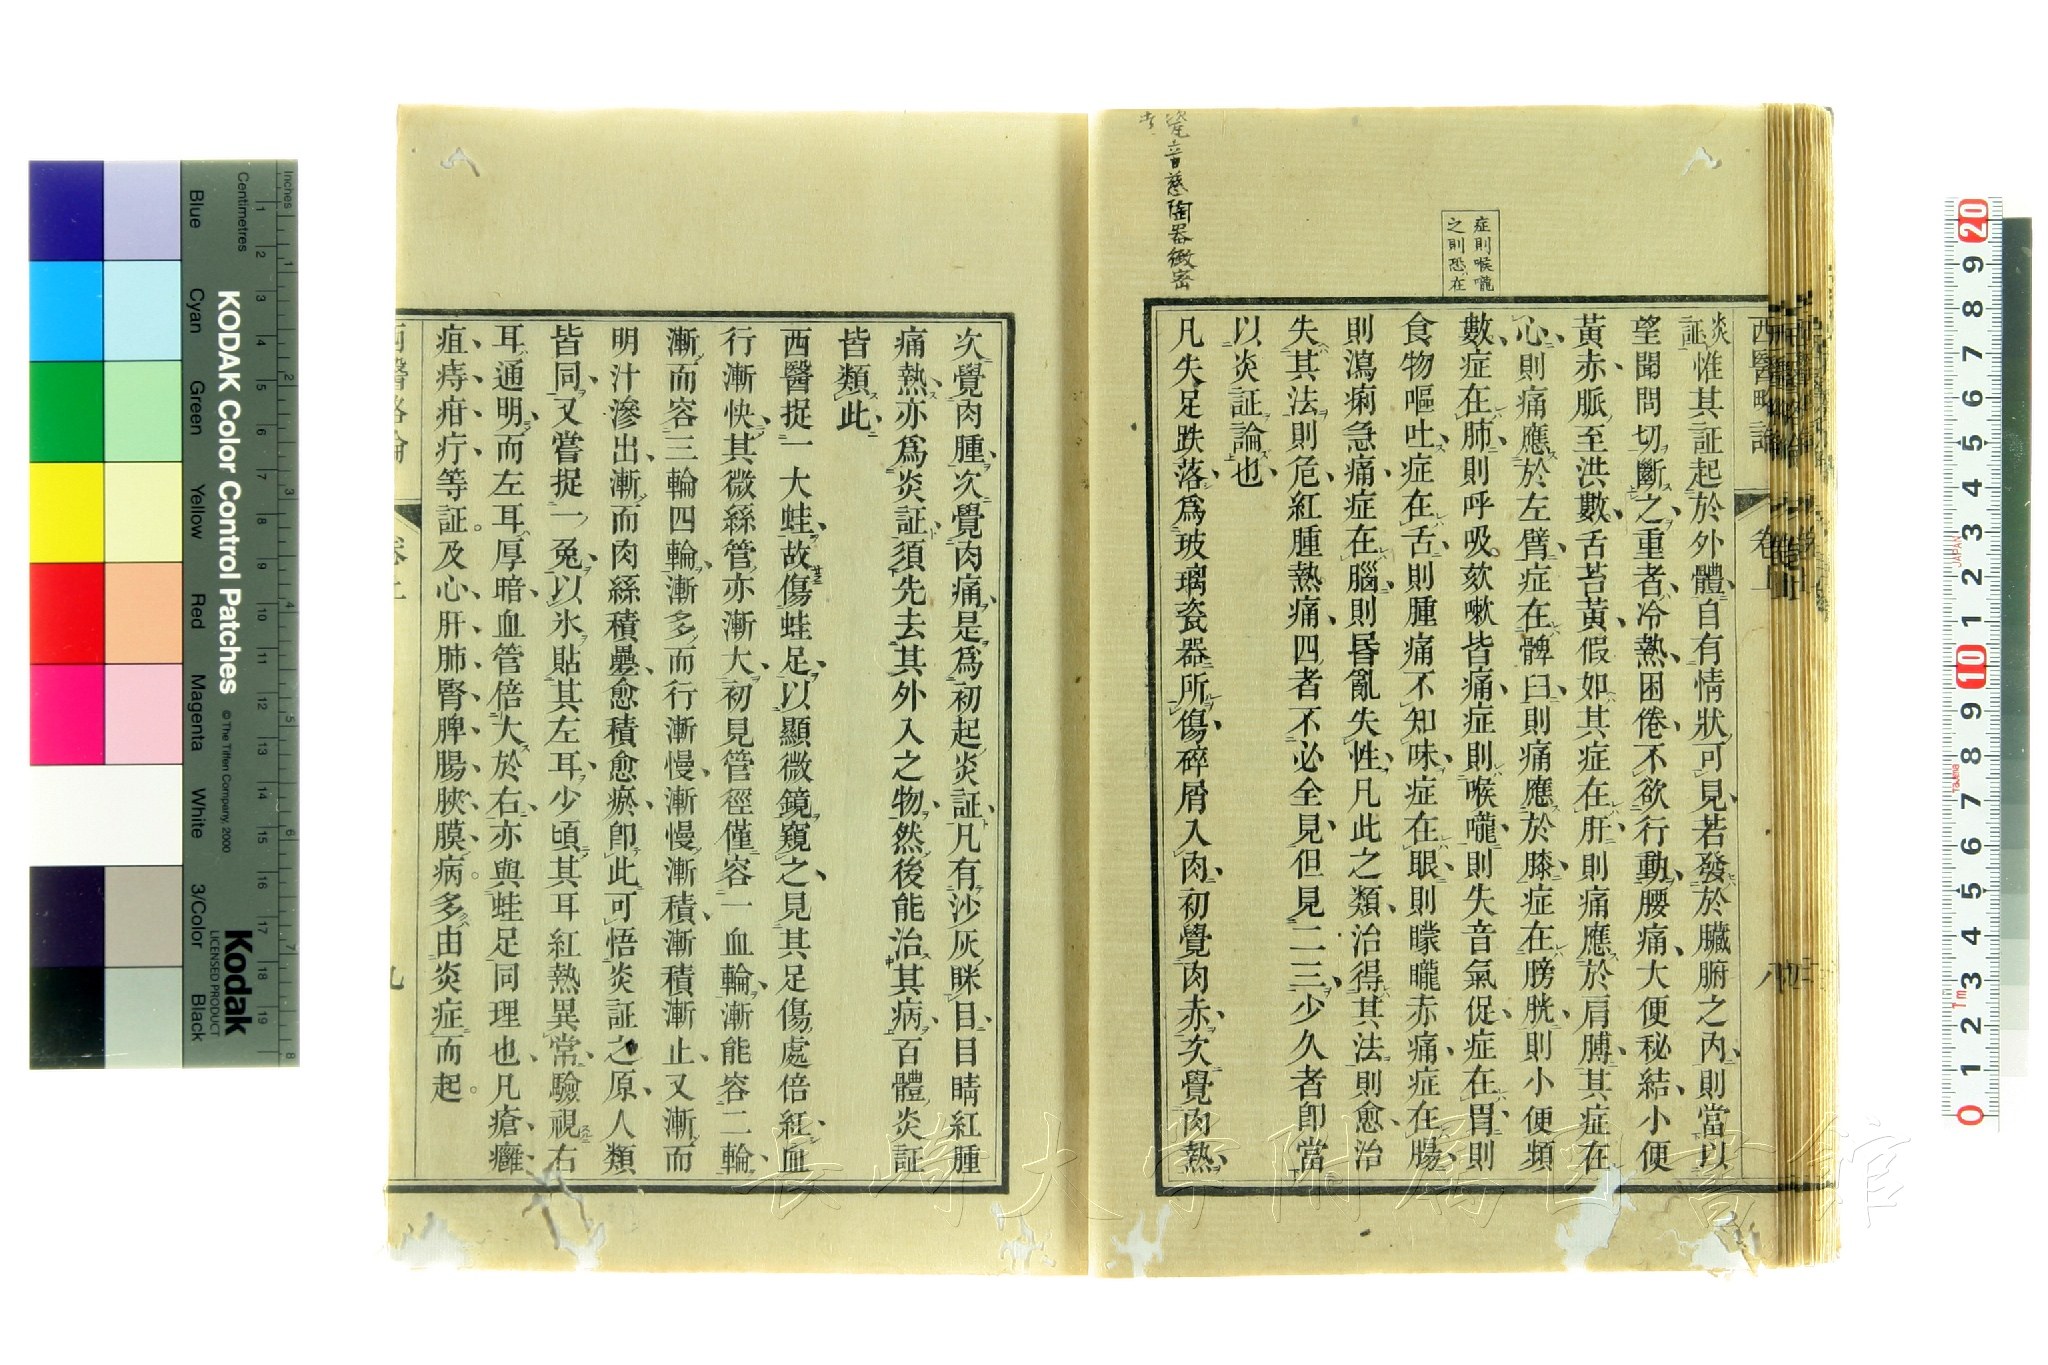 瓷音慈陶器緻密
症則喉嚨
之則恐在
西醫略論
卷上
八
炎証惟其証起於外體自有情狀可見若發於臟腑之內則當以
望聞問切斷之重者冷熱困倦不欲行動腰痛大便秘結小便
黃赤脈至洪數舌苔黃假如其症在肝則痛應於肩膊其症在
心則痛應於左臂症在髀臼則痛應於膝症在膀胱則小便頻
數症在肺則呼吸欬嗽皆痛症則喉嚨則失音氣促症在胃則
食物嘔吐症在舌則腫痛不知味症在眼則矇矓赤痛症在腸
則瀉痢急痛症在腦則昏亂失性凡此之類治得其法則愈治
失其法則危紅腫熱痛四者不必全見但見二三少久者卽當
以炎証論也
凡失足跌落爲玻璃瓷器所傷碎屑入肉初覺肉赤次覺肉熱
次覺肉腫次覺肉痛是爲初起炎証凡有沙灰眯目目睛紅腫
痛熱亦爲炎証須先去其外入之物然後能治其病百體炎証
皆類此
西醫捉一大蛙故傷蛙足以顯微鏡窺之見其足傷處倍紅血
行漸快其微絲管亦漸大初見管徑僅容一血輪漸能容二輪
漸而容三輪四輪漸多而行漸慢漸慢漸積漸積漸止又漸而
明汁滲出漸而肉絲積壘愈積愈瘀卽此可悟炎証之原人類
皆同又嘗捉一兔以氷貼其左耳少頃其耳紅熱異常驗視右
耳通明而左耳厚暗血管倍大於右亦與蛙足同理也凡瘡癰
疽痔疳疔等証及心肝肺腎脾腸胰膜病多由炎症而起
九
KODAK Color Control Patches
© The Tiffen Company, 2000
Kodak
LICENSED PRODUCT
Inches
Centimetres
Blue
Cyan
Green
Yellow
Red
Magenta
White
3/Color
Black
長崎大学附属図書館